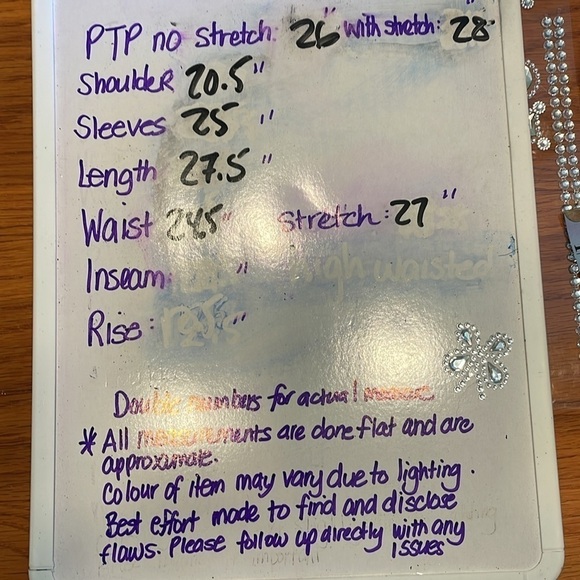 PTP no stretch: 26" with stretch: 28"
Shoulder 20.5"
Sleeves 25"
Length 27.5"
Waist 24.5" stretch: 27"
Inseam: " high waisted
Rise: "
Double numbers for actual
* All measurements are done flat and are
approximate.
Colour of item may vary due to lighting.
Best effort made to find and disclose
flaws. Please follow up directly with any
issues